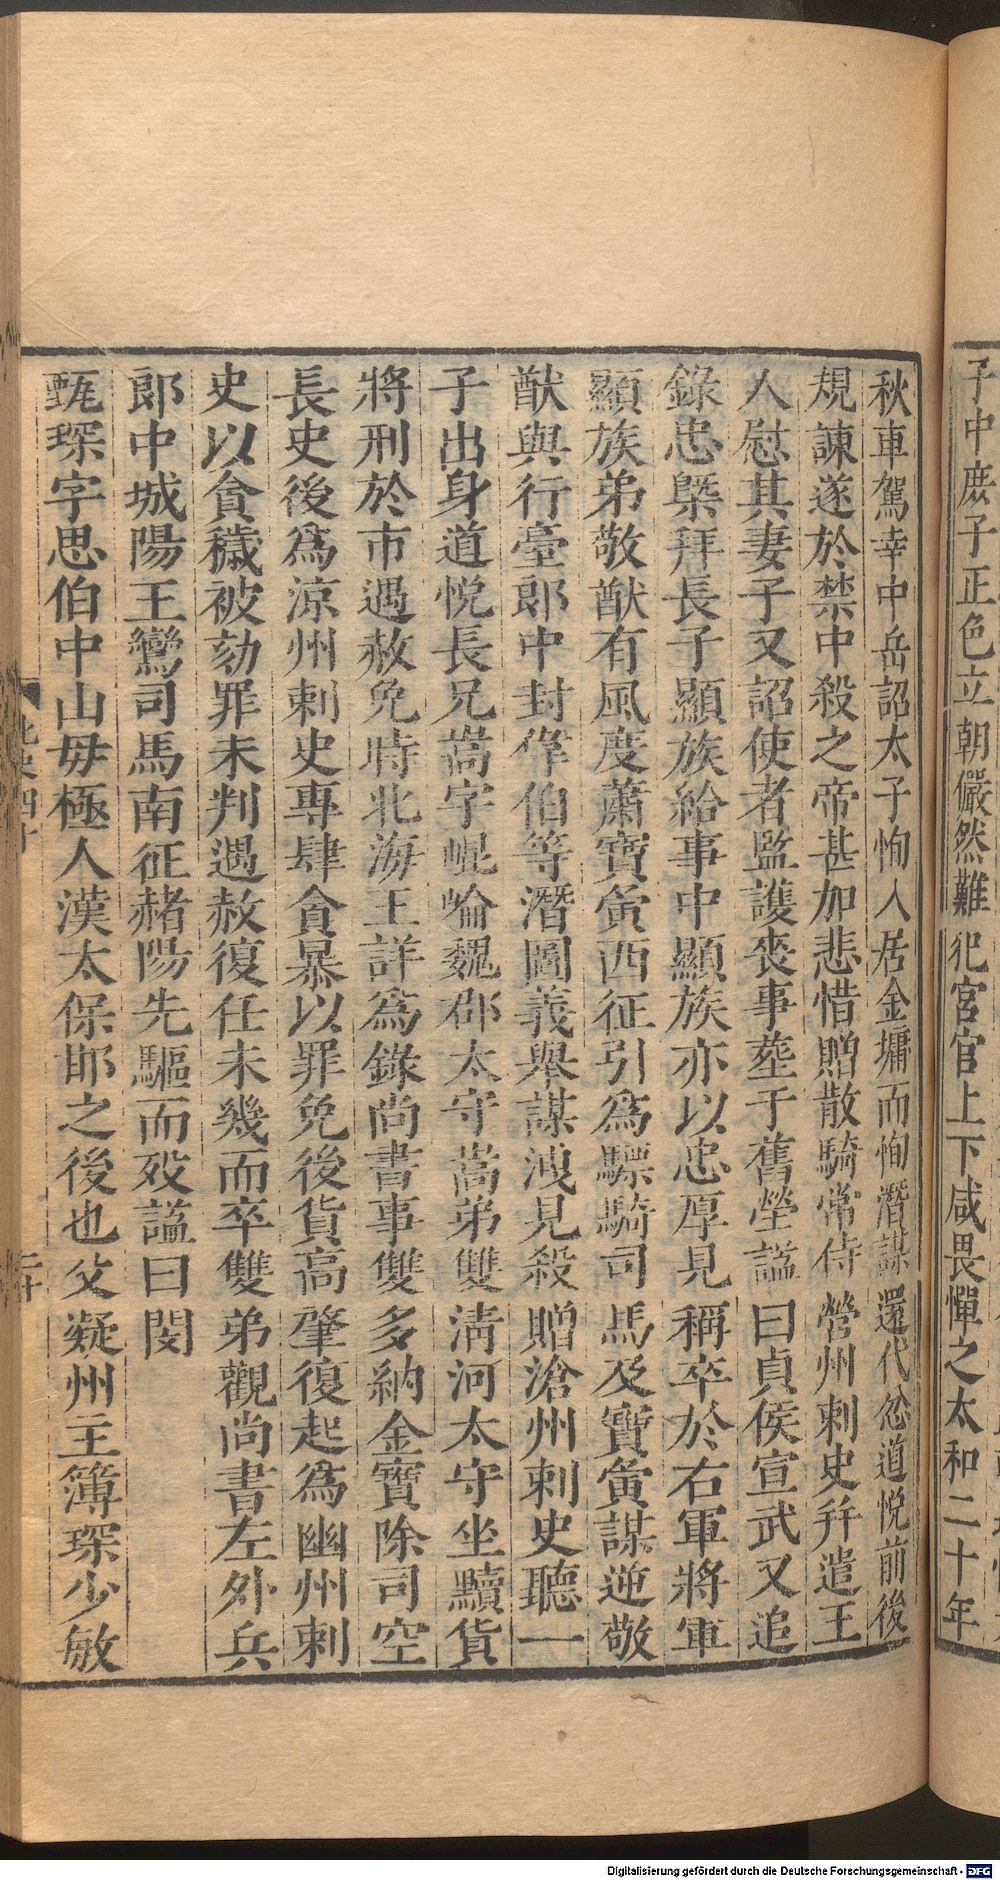 子中庶子正色立朝儼然難犯宮官上下咸畏憚之太和二十年
秋車駕幸中岳詔太子恂入居金墉而恂潛謀還代忿道悅前後
規諫遂於禁中殺之帝甚加悲惜贈散騎常侍營州刺史幷遣王
人慰其妻子又詔使者監護喪事葬于舊塋諡曰貞侯宣武又追
錄忠槩拜長子顯族給事中顯族亦以忠厚見稱卒於右軍將軍
顯族弟敬猷有風度蕭寶夤西征引爲驃騎司馬及寶夤謀逆敬
猷與行臺郎中封偉伯等潛圖義舉謀洩見殺贈滄州刺史聽一
子出身道悅長兄嵩字崐崘魏郡太守嵩弟雙清河太守坐黷貨
將刑於市遇赦免時北海王詳爲錄尚書事雙多納金寶除司空
長史後爲涼州刺史專肆貪暴以罪免後貨高肇復起爲幽州刺
史以貪穢被劾罪未判遇赦復任未幾而卒雙弟觀尚書左外兵
郎中城陽王鸞司馬南征赭陽先驅而歿諡曰閔
甄琛字思伯中山毋極人漢太保邯之後也父凝州主簿琛少敏
北史四十
二十
Digitalisierung gefördert durch die Deutsche Forschungsgemeinschaft - DFG